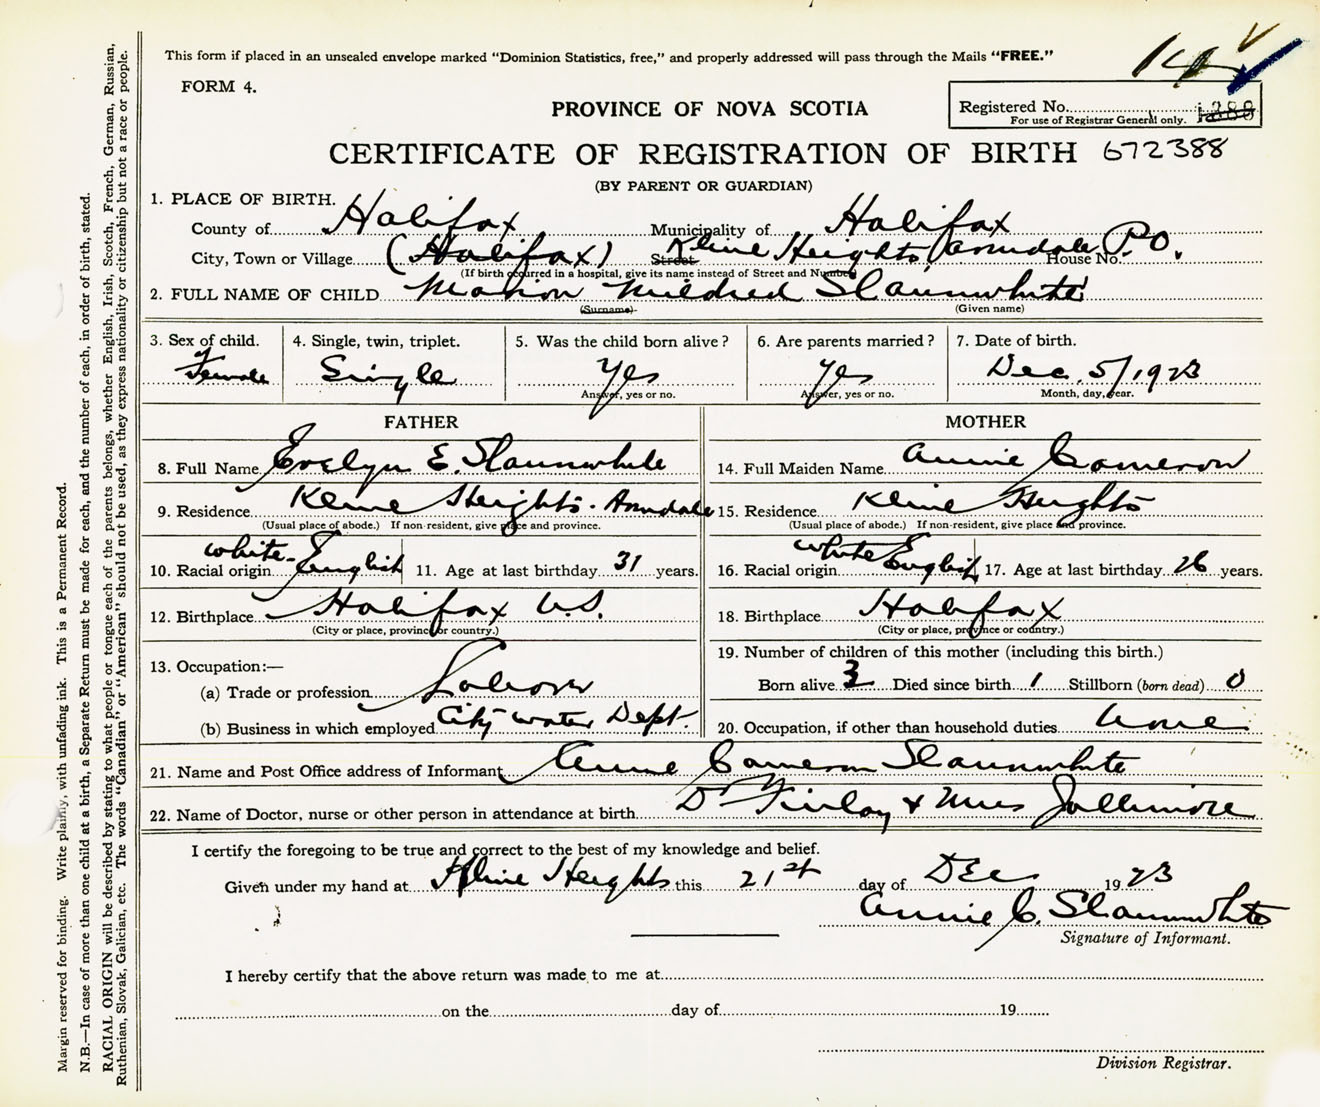 This form if placed in an unsealed envelope marked "Dominion Statistics, free," and properly addressed will pass through the Mails "FREE."
FORM 4.
PROVINCE OF NOVA SCOTIA
Registered No.
For use of Registrar General only.
CERTIFICATE OF REGISTRATION OF BIRTH 672388
(BY PARENT OR GUARDIAN)
1. PLACE OF BIRTH.
County of Halifax Municipality of Halifax
City, Town or Village (Halifax) Street Kline Heights, Armdale P.O. House No.
(If birth occurred in a hospital, give its name instead of Street and Number)
2. FULL NAME OF CHILD Marion Mildred Slaunwhite
(Surname) (Given name)
3. Sex of child. 4. Single, twin, triplet. 5. Was the child born alive? 6. Are parents married? 7. Date of birth.
Female Single Yes Yes Dec. 5/1923
Answer, yes or no. Answer, yes or no. Month, day, year.
FATHER MOTHER
8. Full Name Evelyn E. Slaunwhite 14. Full Maiden Name Annie Cameron
9. Residence Kline Heights - Armdale 15. Residence Kline Heights
(Usual place of abode.) If non-resident, give place and province. (Usual place of abode.) If non-resident, give place and province.
10. Racial origin white - English 11. Age at last birthday 31 years. 16. Racial origin white English 17. Age at last birthday 26 years.
12. Birthplace Halifax N.S. 18. Birthplace Halifax
(City or place, province or country.) (City or place, province or country.)
13. Occupation:— 19. Number of children of this mother (including this birth.)
(a) Trade or profession Laborer Born alive 3 Died since birth 1 Stillborn (born dead) 0
(b) Business in which employed City water Dept. 20. Occupation, if other than household duties none
21. Name and Post Office address of Informant Annie Cameron Slaunwhite
22. Name of Doctor, nurse or other person in attendance at birth Dr Finlay & Mrs Jollimore
I certify the foregoing to be true and correct to the best of my knowledge and belief.
Given under my hand at Kline Heights this 21st day of Dec 1923
Annie C. Slaunwhite
Signature of Informant.
I hereby certify that the above return was made to me at
on the day of 19
Division Registrar.
Margin reserved for binding. Write plainly, with unfading ink. This is a Permanent Record.
N.B.—In case of more than one child at a birth, a Separate Return must be made for each, and the number of each, in order of birth, stated.
RACIAL ORIGIN will be described by stating to what people or tongue each of the parents belongs, whether English, Irish, Scotch, French, German, Russian,
Ruthenian, Slovak, Galician, etc. The words "Canadian" or "American" should not be used, as they express nationality or citizenship but not a race or people.